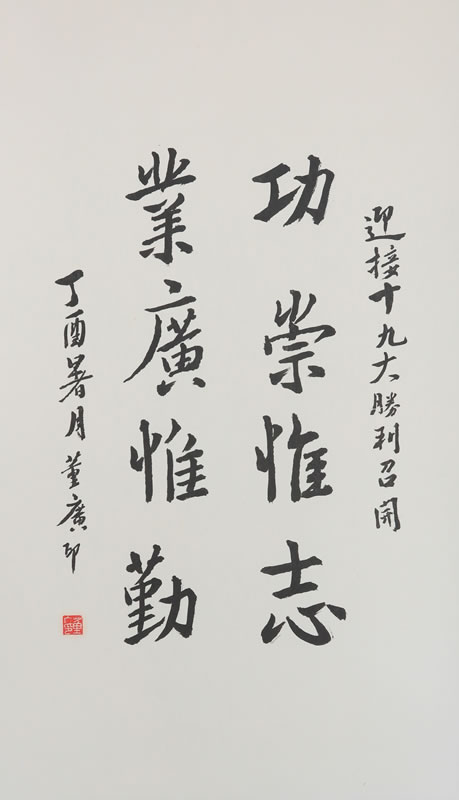 迎接十九大勝利召開
功崇惟志
業廣惟勤
丁酉暑月董廣印